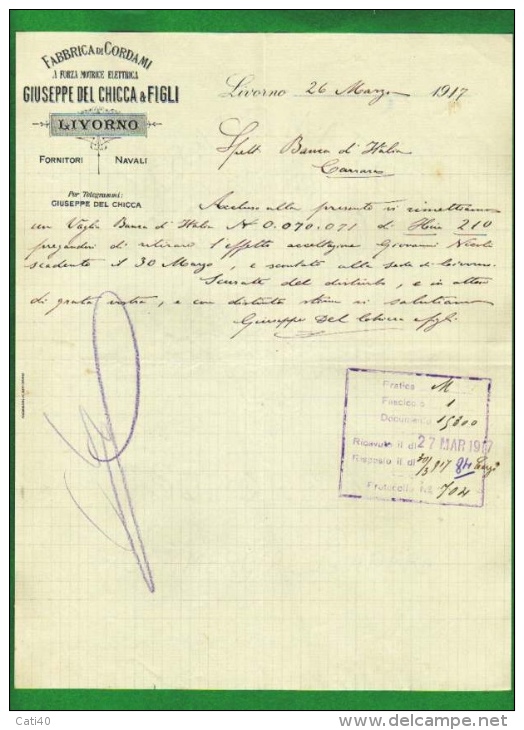 FABBRICA DI CORDAMI
A FORZA MOTRICE ELETTRICA
GIUSEPPE DEL CHICCA & FIGLI
LIVORNO
FORNITORI NAVALI
Per Telegrammi:
GIUSEPPE DEL CHICCA
Livorno 26 Marzo 1917
Spett. Banca d'Italia
Carrara
Acclusa alla presente vi rimettiamo
un Vaglia Banca d'Italia N 0.070.071 di 210
pregandovi di ritirare l'effetto accettazione Giovanni
scadente il 30 Marzo, e scontato alla sede di Livorno.
Scusate del disturbo, e in attesa
di grata vostra, e con distinta stima vi salutiamo
Giuseppe Del Chicca figli
Pratica M
Fascicolo 1
Documento 15800
Ricevuto il dì 27 MAR 1917
Risposto il dì 30/3 917
Protocollo N. 704
Cati40
www.delcampe.net